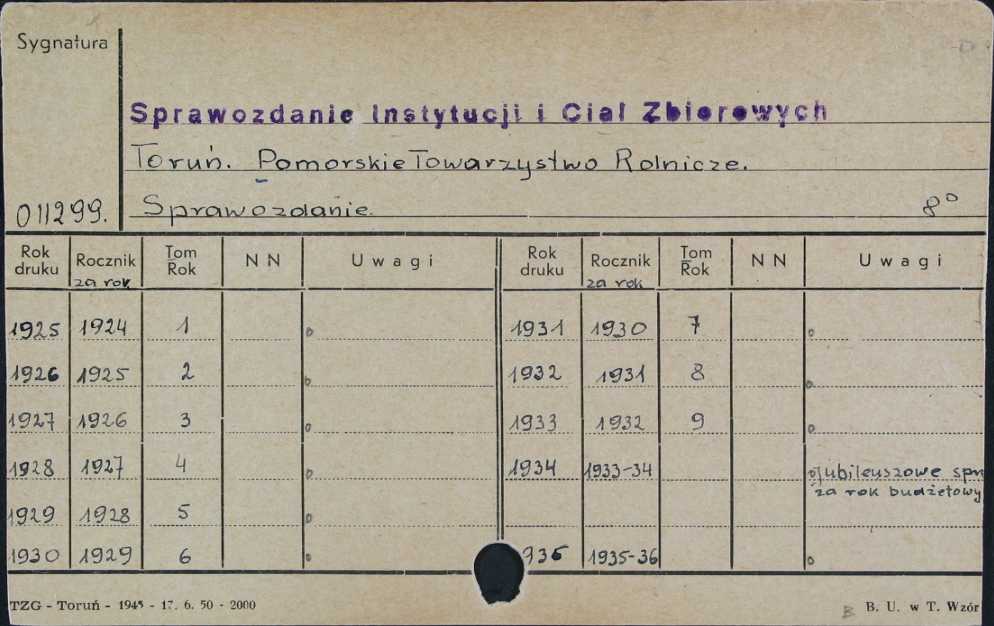 Sygnatura
Sprawozdanie Instytucji i Ciał Zbiorowych
Toruń. Pomorskie Towarzystwo Rolnicze.
011299. Sprawozdanie. 8°
Rok druku Rocznik za rok Tom Rok NN Uwagi Rok druku Rocznik za rok Tom Rok NN Uwagi
1925 1924 1 o 1931 1930 7 o
1926 1925 2 o 1932 1931 8 o
1927 1926 3 o 1933 1932 9 o
1928 1927 4 o 1934 1933-34 o jubileuszowe spr
za rok budżetowy
1929 1928 5 o
1930 1929 6 o 936 1935-36 o
TZG - Toruń - 1945 - 17. 6. 50 - 2000 B B. U. w T. Wzór